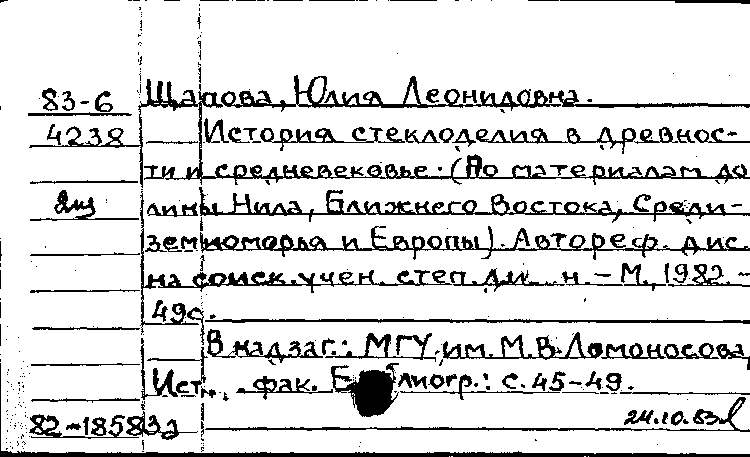 83-6 Щапова, Юлия Леонидовна.
4238 История стеклоделия в древнос-
ти и средневековье. (По материалам до
лины Нила, Ближнего Востока, Среди-
земноморья и Европы). Автореф. дис.
на соиск. учен. степ. д.и.н. - М., 1982. -
49с.
В надзаг.: МГУ им. М.В. Ломоносова,
Ист. фак. Библиогр.: с. 45-49.
82-18583а 24.10.83